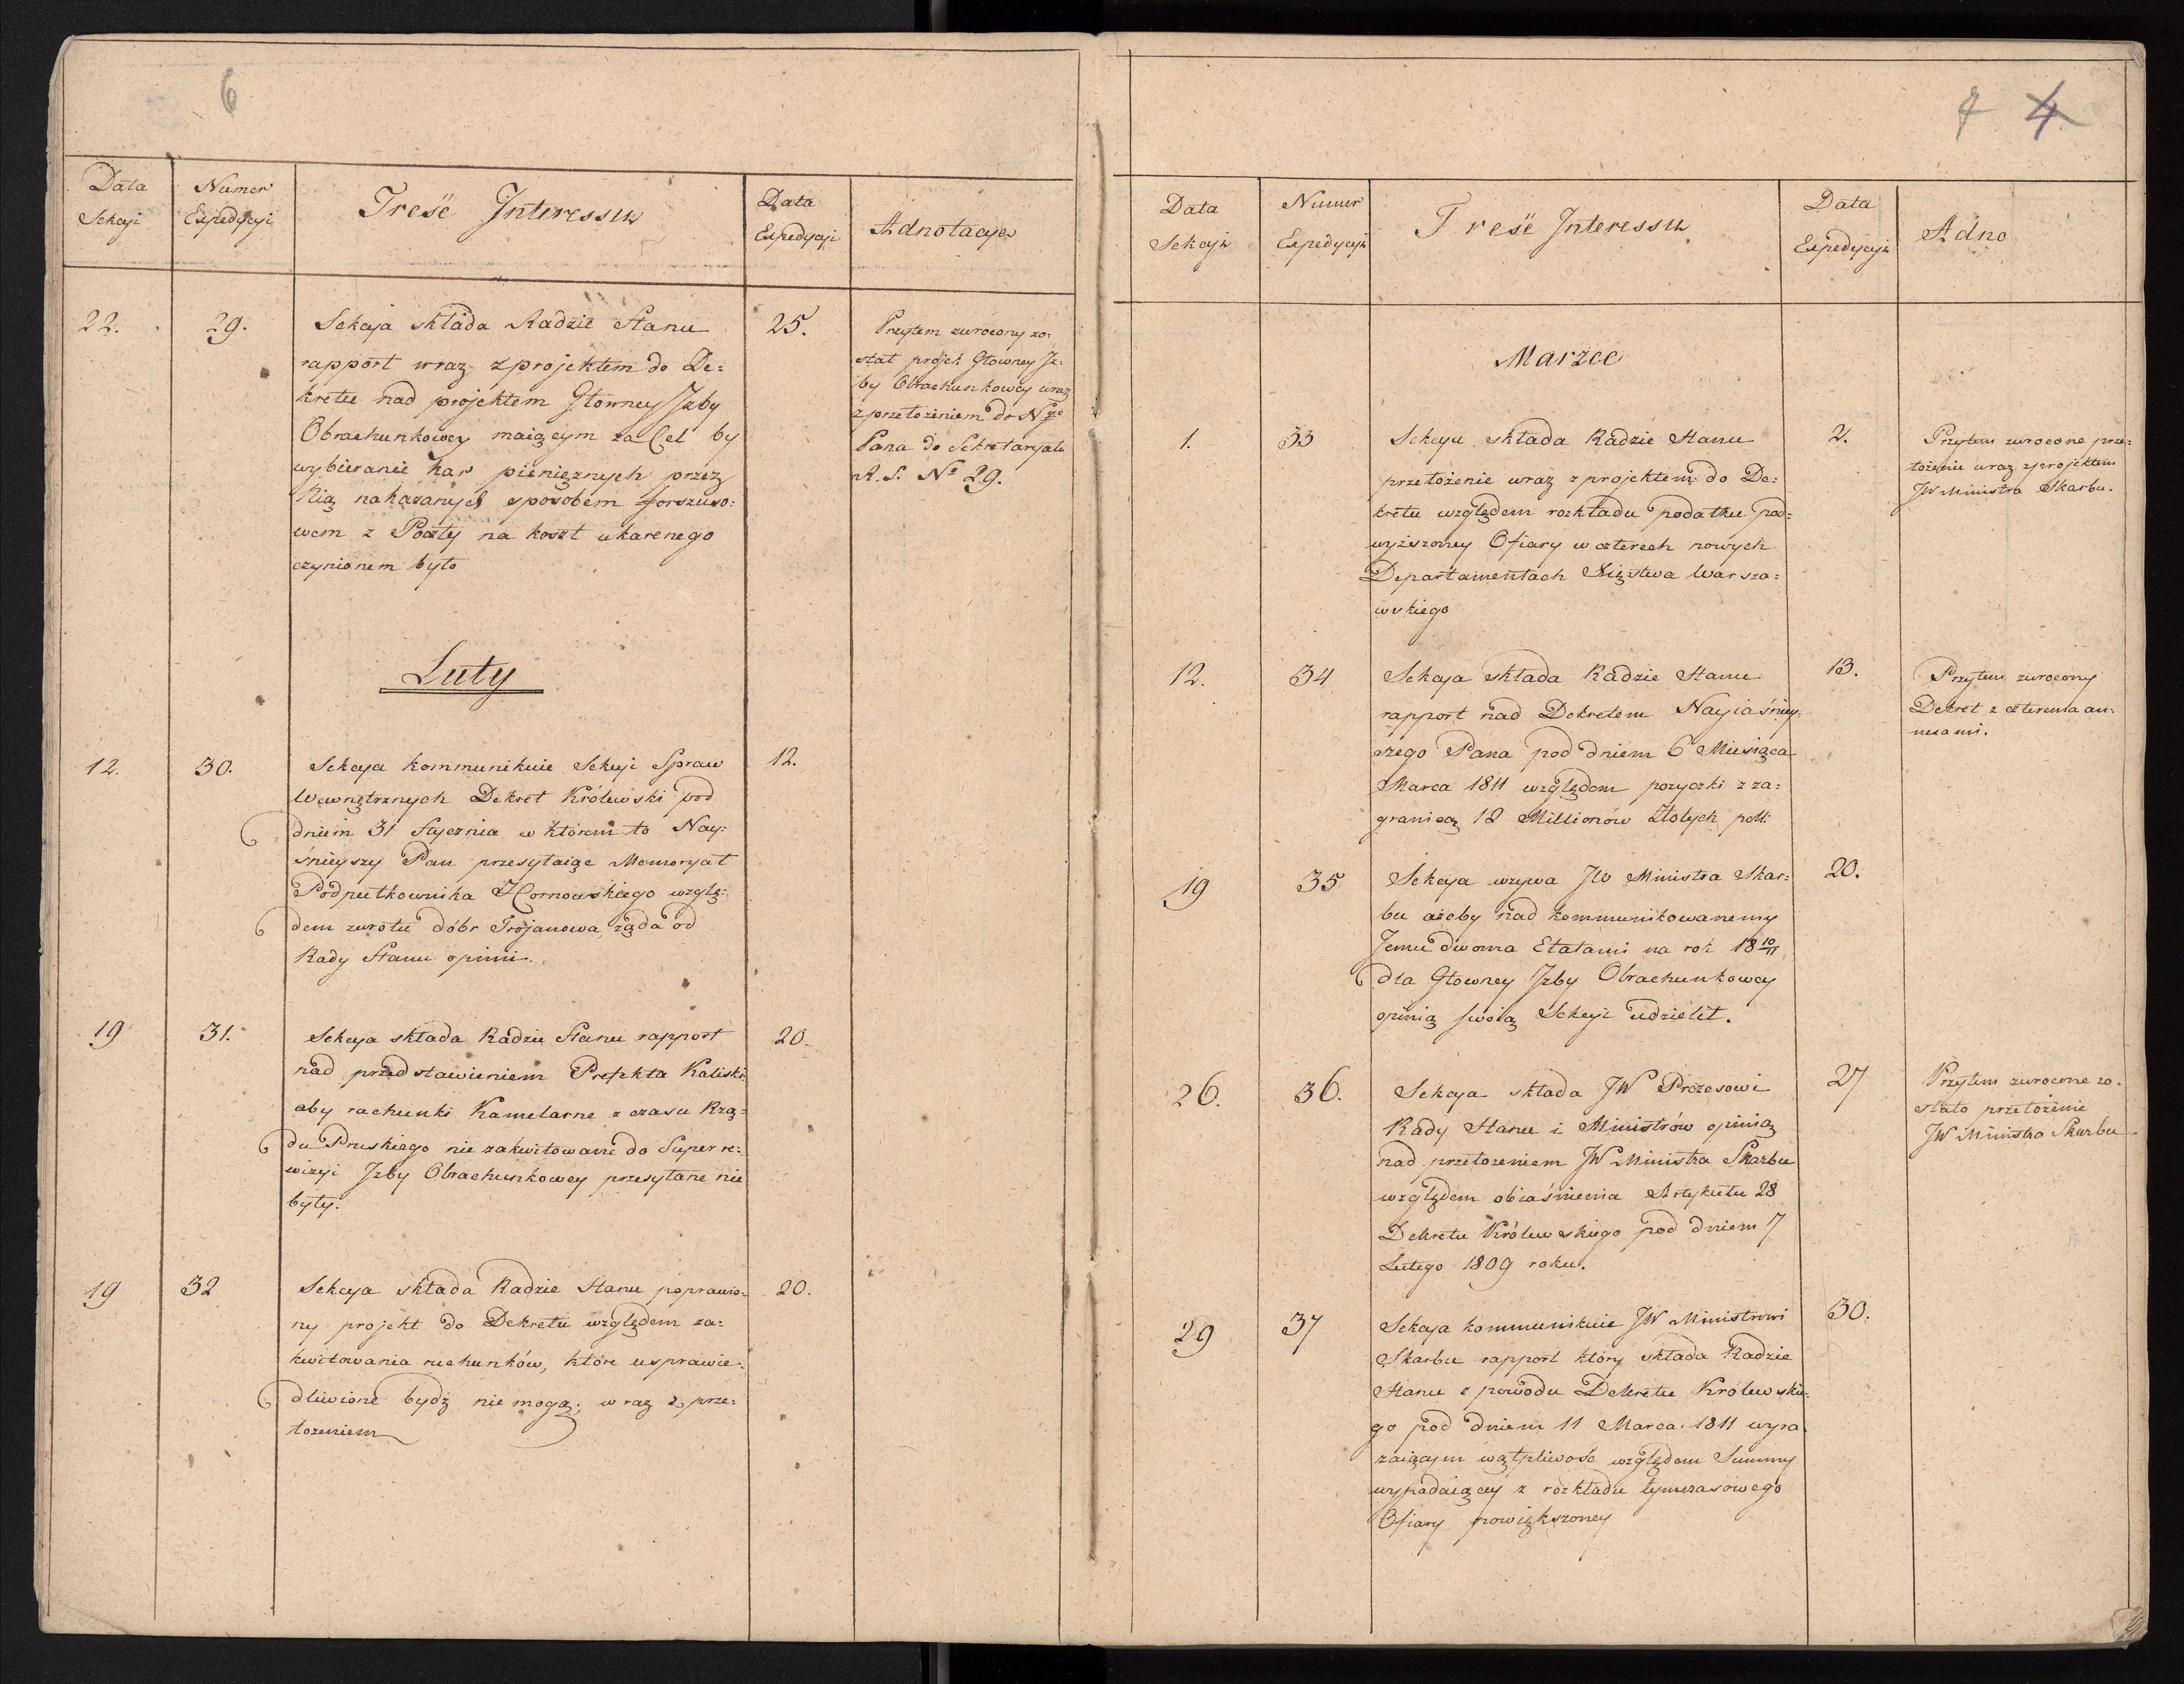 6
Data Sekcyi
Numer Expedycyi
Treść Interessu
Data Expedycyi
Adnotacye
22.
29.
Sekcya składa Radzie Stanu
rapport wraz z projektem do De=
kretu nad projektem Głowney Jzby
Obrachunkowey maiącym za Cel by
wybieranie kar pieniężnych przez
Nią nakazanych sposobem forszuso=
wem z Poczty na koszt ukarenego
czynionem było
25.
Przytem zwrocony zo=
stał projek Głowney Jz=
by Obrachunkowey wraz
z przełożeniem do Ngo
Pana do Sekretaryatu
R. S. No 29.
Luty
12.
30.
Sekcya kommunikuie Sekcyi Spraw
Wewnętrznych Dekret Królewski pod
dniem 31 Stycznia w którem to Nay=
śnieyszy Pan przesyłaiąc Memoryał
Podpułkownika Hornowskiego wzglę=
dem zwrotu dóbr Trojanowa, żąda od
Rady Stanu opinii.
12.
19
31.
Sekcya składa Radzie Stanu rapport
nad przedstawieniem Prefekta Kaliski.
aby rachunki Kamelarne z czasu Rzą=
du Pruskiego nie zakwitowane do Superre=
wizyi Jzby Obrachunkowey przesyłane nie
były.
20.
19
32
Sekcya składa Radzie Stanu poprawio=
ny projekt do Dekretu względem za=
kwitowania rachunków, które usprawie=
dliwione bydź nie mogą; wraz z prze=
łożeniem
20.
7 4
Data Sekcyi
Numer Expedycyi
Treść Interessu
Data Expedycyi
Adno
Marzec
1.
33
Sekcya składa Radzie Stanu
przełożenie wraz z projektem do De=
kretu względem rozkładu podatku pod=
wyższoney Ofiary w czterech nowych
Departamentach Xięstwa Warsza=
wskiego
2.
Przytem zwrocone prze=
łożenie wraz z projektem
JW Ministra Skarbu.
12.
34
Sekcya składa Radzie Stanu
rapport nad Dekretem Nayiaśniey=
szego Pana pod dniem 6 Miesiąca
Marca 1811 względem pozyczki z za=
granicą 12 Millionów Złotych polk.
13.
Przytem zwrocony
Dekret z czterema an=
nexami.
19
35
Sekcya wzywa JW Ministra Skar=
bu ażeby nad kommunikowanemy
Jemu dwoma Etatami na rok 18 10/11
dla Głowney Jzby Obrachunkowey
opinią swoią Sekcyi udzielił.
20.
26.
36.
Sekcya składa JW Prezesowi
Rady Stanu i Ministrów opinią
nad przełozeniem JW Ministra Skarbu
względem obiaśnienia Artykułu 28
Dekretu Królewskiego pod dniem 7
Lutego 1809 roku.
27
Przytem zwrocone zo.
stało przełożenie
JW Ministra Skarbu
29
37
Sekcya kommunikuie JW Ministrowi
Skarbu rapport który składa Radzie
Stanu z powodu Dekretu Królewskie=
go pod dniem 11 Marca 1811 wyra
żaiącym wątpliwość względem Summy
wypadaiącey z rozkładu tymczasowego
Ofiary powiększoney
30.